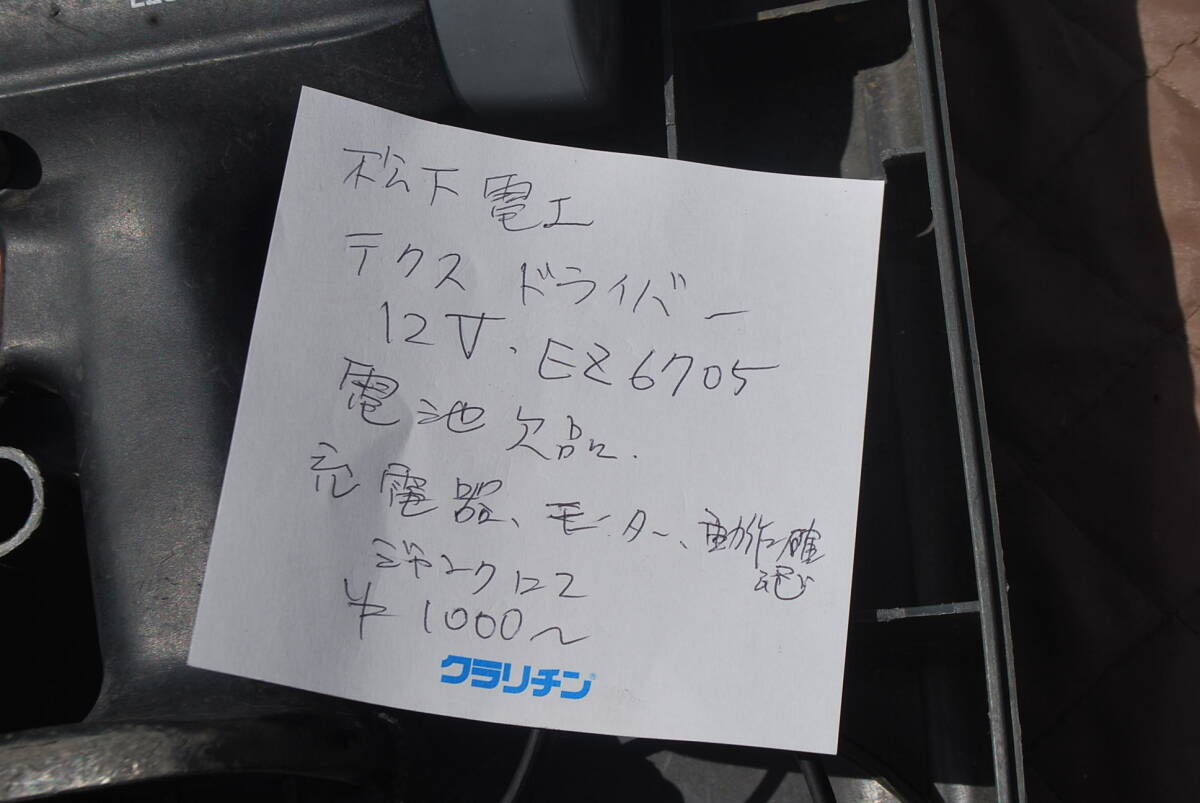 松下電工
テクス ドライバー
12V. EZ6705
電池欠品.
充電器、モーター、動作確認
ジャンクにて
¥1000〜
クラリチン®